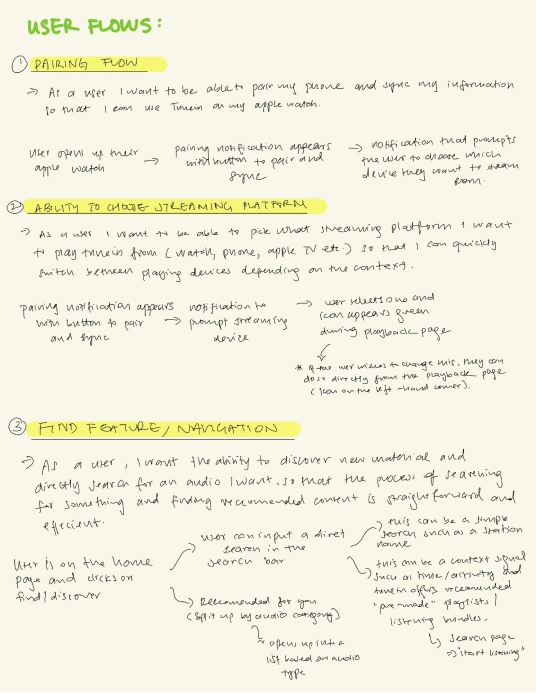 USER FLOWS:
① PAIRING FLOW
→ As a user I want to be able to pair my phone and sync my information
so that I can use Tunein on my apple watch.
User opens up their
apple watch
→ pairing notification appears
with button to pair and
sync
→ notification that prompts
the user to choose which
device they want to stream
from.
② ABILITY TO CHOOSE STREAMING PLATFORM
→ As a user I want to be able to pick what streaming platform I want
to play tunein from (watch, phone, apple TV etc.) so that I can quickly
switch between playing devices depending on the context.
pairing notification appears
with button to pair
and sync
→ notification to
prompt streaming
device
→ user selects one and
icon appears green
during playback page
* if the user wishes to change this, they can
do so directly from the playback page
(icon on the left-hand corner).
③ FIND FEATURE/NAVIGATION
→ As a user, I want the ability to discover new material and
directly search for an audio I want, so that the process of searching
for something and finding recommended content is straightforward and
efficient.
User is on the home
page and clicks on
find/discover
user can input a diret
search in the
search bar
→ this can be a simple
search such as a station
name
this can be a context signal
such as time/activity and
tunein offers recommended
"pre-made" playlists/
listening bundles.
↳ search page
⇒ "start listening"
Recomended for you
(split up by audio category)
opens up into a
list based on audio
type